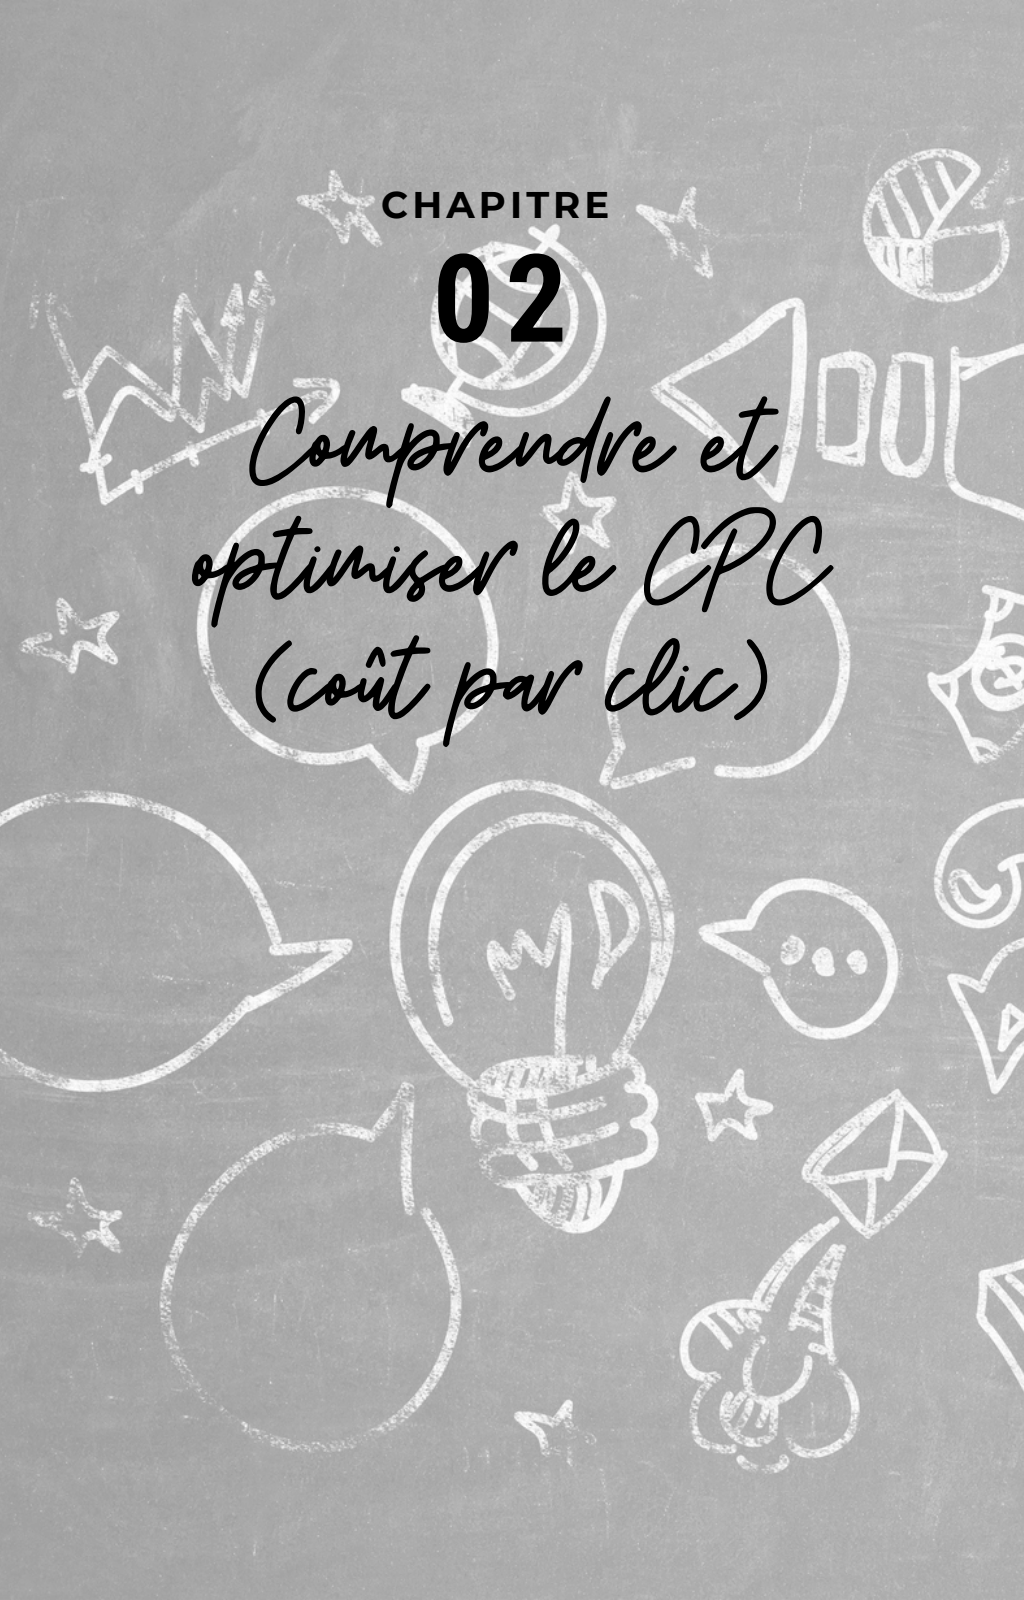 CHAPITRE
02
Comprendre et
optimiser le CPC
(coût par clic)